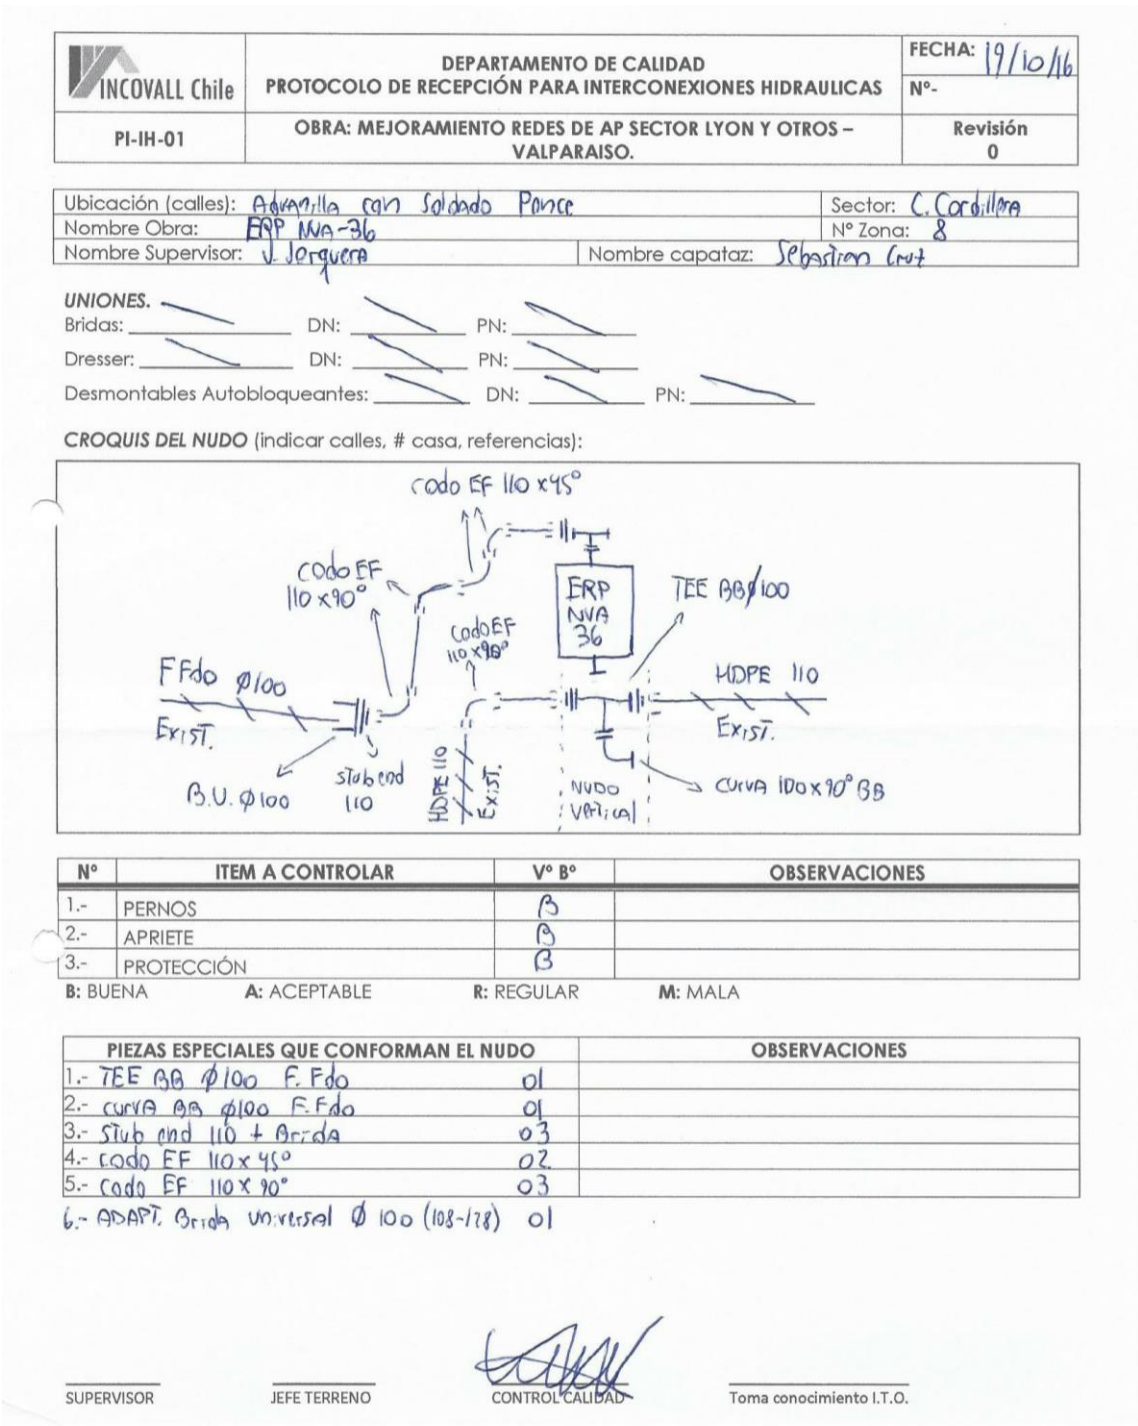 INCOVALL Chile
DEPARTAMENTO DE CALIDAD
PROTOCOLO DE RECEPCIÓN PARA INTERCONEXIONES HIDRAULICAS
FECHA: 19/10/16
Nº-
PI-IH-01
OBRA: MEJORAMIENTO REDES DE AP SECTOR LYON Y OTROS –
VALPARAISO.
Revisión
0
Ubicación (calles): Aduanilla con Soldado Ponce
Sector: C. Cordillera
Nombre Obra: ERP NVA-36
Nº Zona: 8
Nombre Supervisor: J. Jorquera
Nombre capataz: Sebastian Cruz
UNIONES.
Bridas: DN: PN:
Dresser: DN: PN:
Desmontables Autobloqueantes: DN: PN:
CROQUIS DEL NUDO (indicar calles, # casa, referencias):
codo EF 110 x45°
codo EF
110 x90°
ERP
NVA
36
TEE BBø100
codo EF
110 x90°
FFdo ø100
Exist.
HDPE 110
Exist.
B.U. ø100
stub end
110
HDPE 110
Exist.
NUDO
Vertical
CURVA 100x90° BB
Nº ITEM A CONTROLAR Vº Bº OBSERVACIONES
1.- PERNOS B
2.- APRIETE B
3.- PROTECCIÓN B
B: BUENA A: ACEPTABLE R: REGULAR M: MALA
PIEZAS ESPECIALES QUE CONFORMAN EL NUDO OBSERVACIONES
1.- TEE BB ø100 F.Fdo 01
2.- curva BB ø100 F.Fdo 01
3.- Stub end 110 + Brida 03
4.- codo EF 110x45° 02
5.- codo EF 110x90° 03
6.- ADAPT. Brida universal ø 100 (108-128) 01
SUPERVISOR
JEFE TERRENO
CONTROL CALIDAD
Toma conocimiento I.T.O.